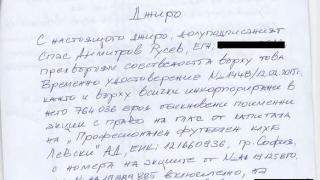 Джиро
С настоящото джиро, долуподписаният
Спас Димитров Русев, ЕГН,
прехвърлям собствеността върху това
Временно удостоверение № 1448/12.02.2015г.
както и върху всички инкорпорирани в
него 764 036 броя обикновени поименни
акции с право на глас от капитала
на „Професионален футболен клуб
Левски" АД, ЕИК: 121660936, гр. София,
с номера на акциите от №
включително, на